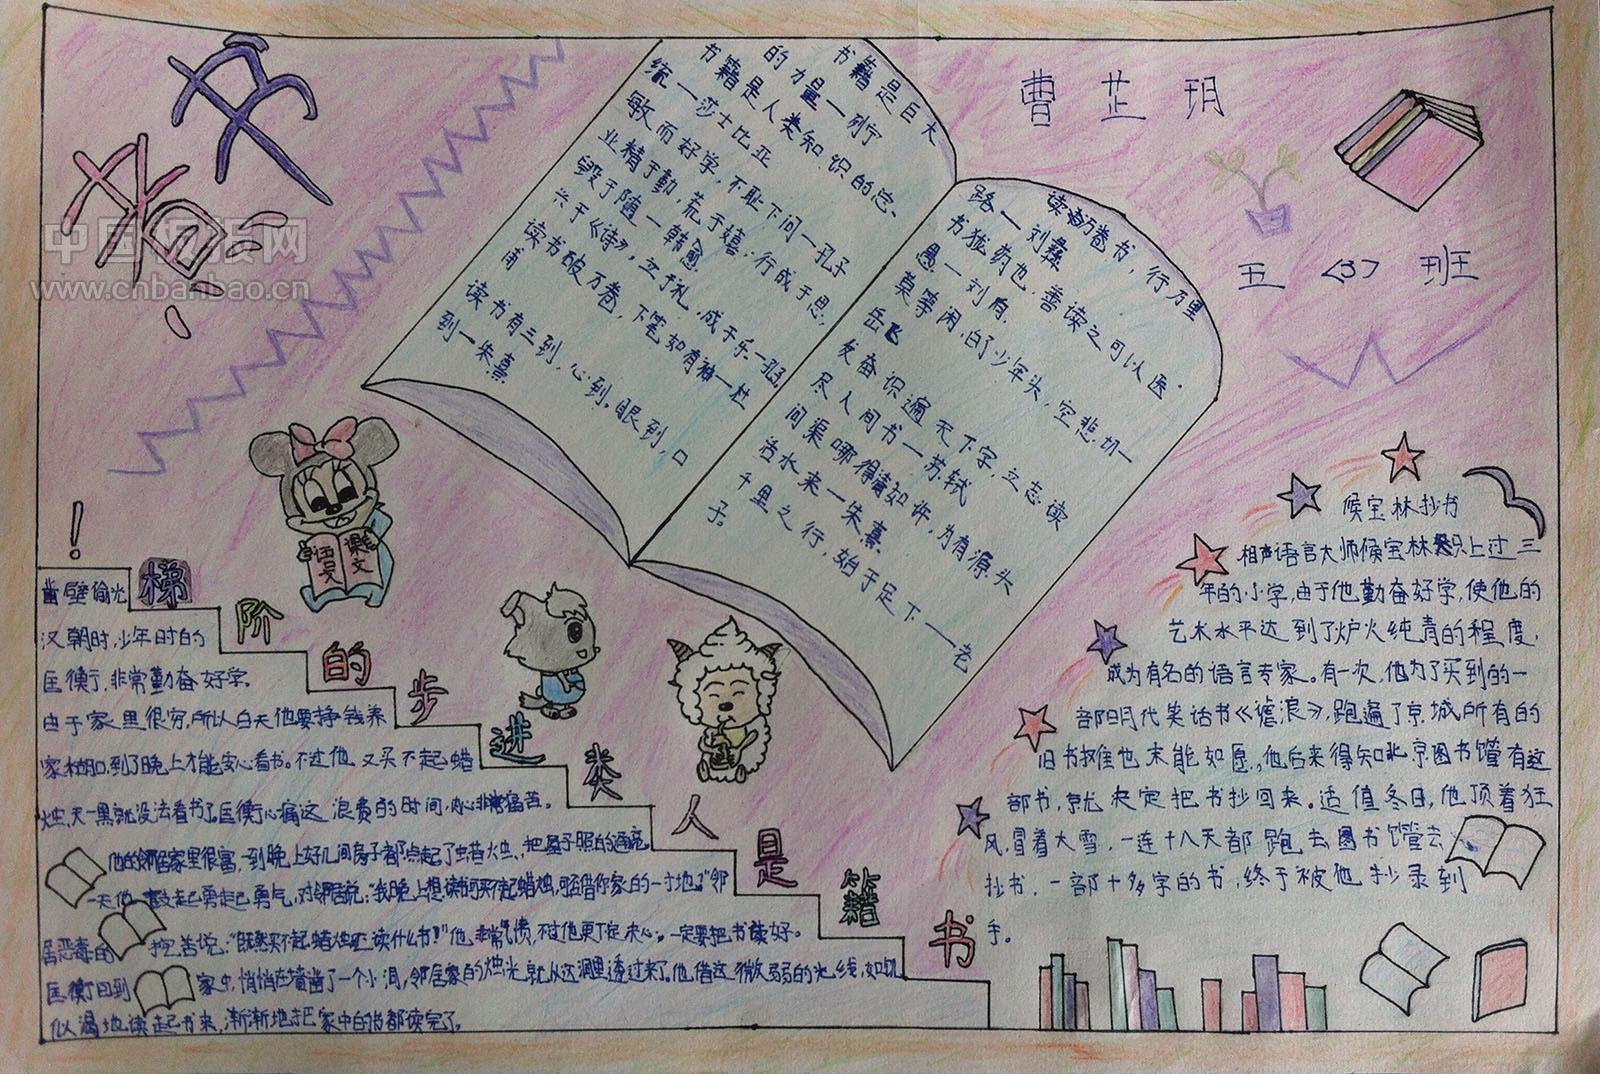 书
香
中国板报网
www.cnbanbao.cn
书籍是巨大
的力量一列宁
书籍是人类知识的总
统一莎士比亚
敏而好学，不耻下问一孔子
业精于勤，荒于嬉；行成于思，
毁于随一韩愈
兴于《诗》，立于礼，成于乐一孔子
读书破万卷，下笔如有神一杜
甫
读书有三到，心到，眼到，口
到一朱熹
读万卷书，行万里
路一刘彝
书犹药也，善读之可以医
愚一刘向，
莫等闲，白了少年头，空悲切一
岳飞
发奋识遍天下字，立志读
尽人间书一苏轼
问渠哪得清如许，为有源头
活水来一朱熹
千里之行，始于足下——老
子。
曹芷玥
五〈3〉班
语文
课文
！
梯阶的步进类人是籍书
凿壁偷光
汉朝时，少年时的
匡衡，非常勤奋好学。
由于家里很穷，所以白天他要挣钱养
家糊口，到了晚上才能安心看书。不过他又买不起蜡
烛，天一黑就没法看书了。匡衡心痛这浪费的时间，内心非常痛苦。
他的邻居家里很富，一到晚上好几间房子都点起了蜡烛，把屋子照的通亮。
一天他鼓起勇起己勇气，对邻居说：“我晚上想读书可买不起蜡烛，可否借你家的一寸地。”邻
居恶毒的挖苦说：“既然买不起蜡烛还读什么书！”他非常气愤，不过他更下定决心，一定要把书读好。
匡衡回到家中，悄悄在墙凿了一个小洞，邻居家的烛光就从这洞里透过来了。他借这微弱的光线，如饥
似渴地读起书来，渐渐地把家中的书都读完了。
候宝林抄书
相声语言大师候宝林只上过三
年的小学，由于他勤奋好学，使他的
艺术水平达到了炉火纯青的程度，
成为有名的语言专家。有一次，他为了买到的一
部明代笑话书《谑浪》，跑遍了京城所有的
旧书摊也未能如愿。他后来得知北京图书馆有这
部书，就决定把书抄回来。适值冬日，他顶着狂
风，冒着大雪，一连十八天都跑去图书馆去
抄书，一部十多字的书，终于被他抄录到
手。